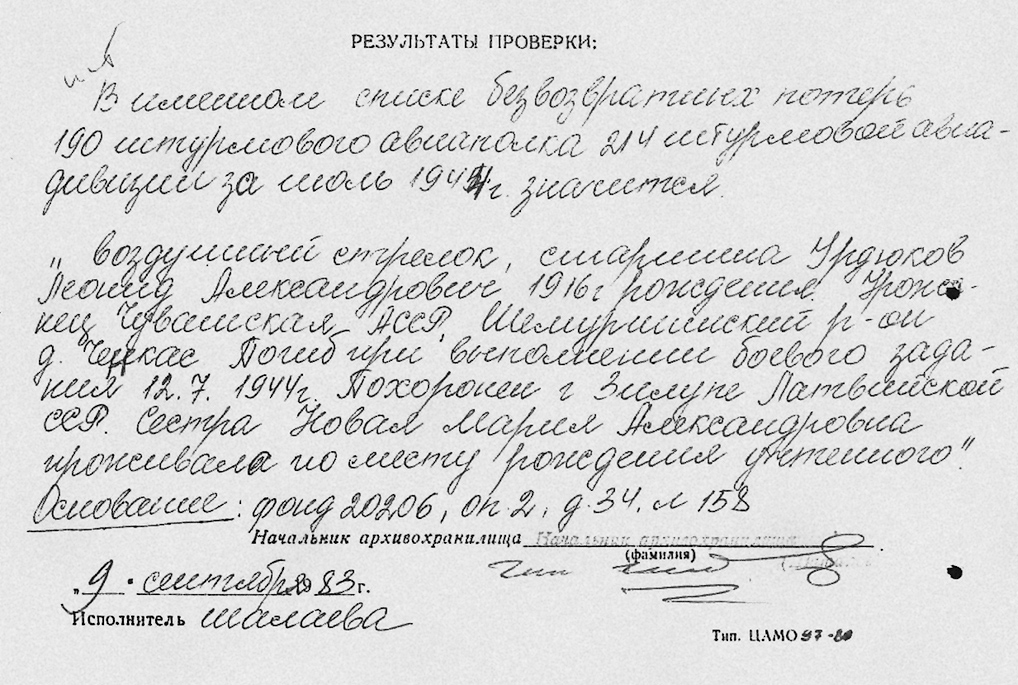 РЕЗУЛЬТАТЫ ПРОВЕРКИ:
В именном списке безвозвратных потерь
190 штурмового авиаполка 214 штурмовой авиа-
дивизии за июль 1944 г. значится.
„воздушный стрелок, старшина Урдюков
Леонид Александрович 1916 г рождения. Уроже-
нец Чувашская АССР, Шемуршинский р-он
д. Ченкас Погиб при выполнении боевого зада-
ния 12.7.1944г. Похоронен г Зилупе Латвийской
ССР. Сестра Новая Мария Александровна
проживала по месту рождения учтенного".
Основание: фонд 20206, оп. 2, д. 34. л 158
Начальник архивохранилища Начальник архивохранилища
(фамилия)
„9" сентября 1983 г.
Исполнитель Шалаева
Тип. ЦАМО 97-80